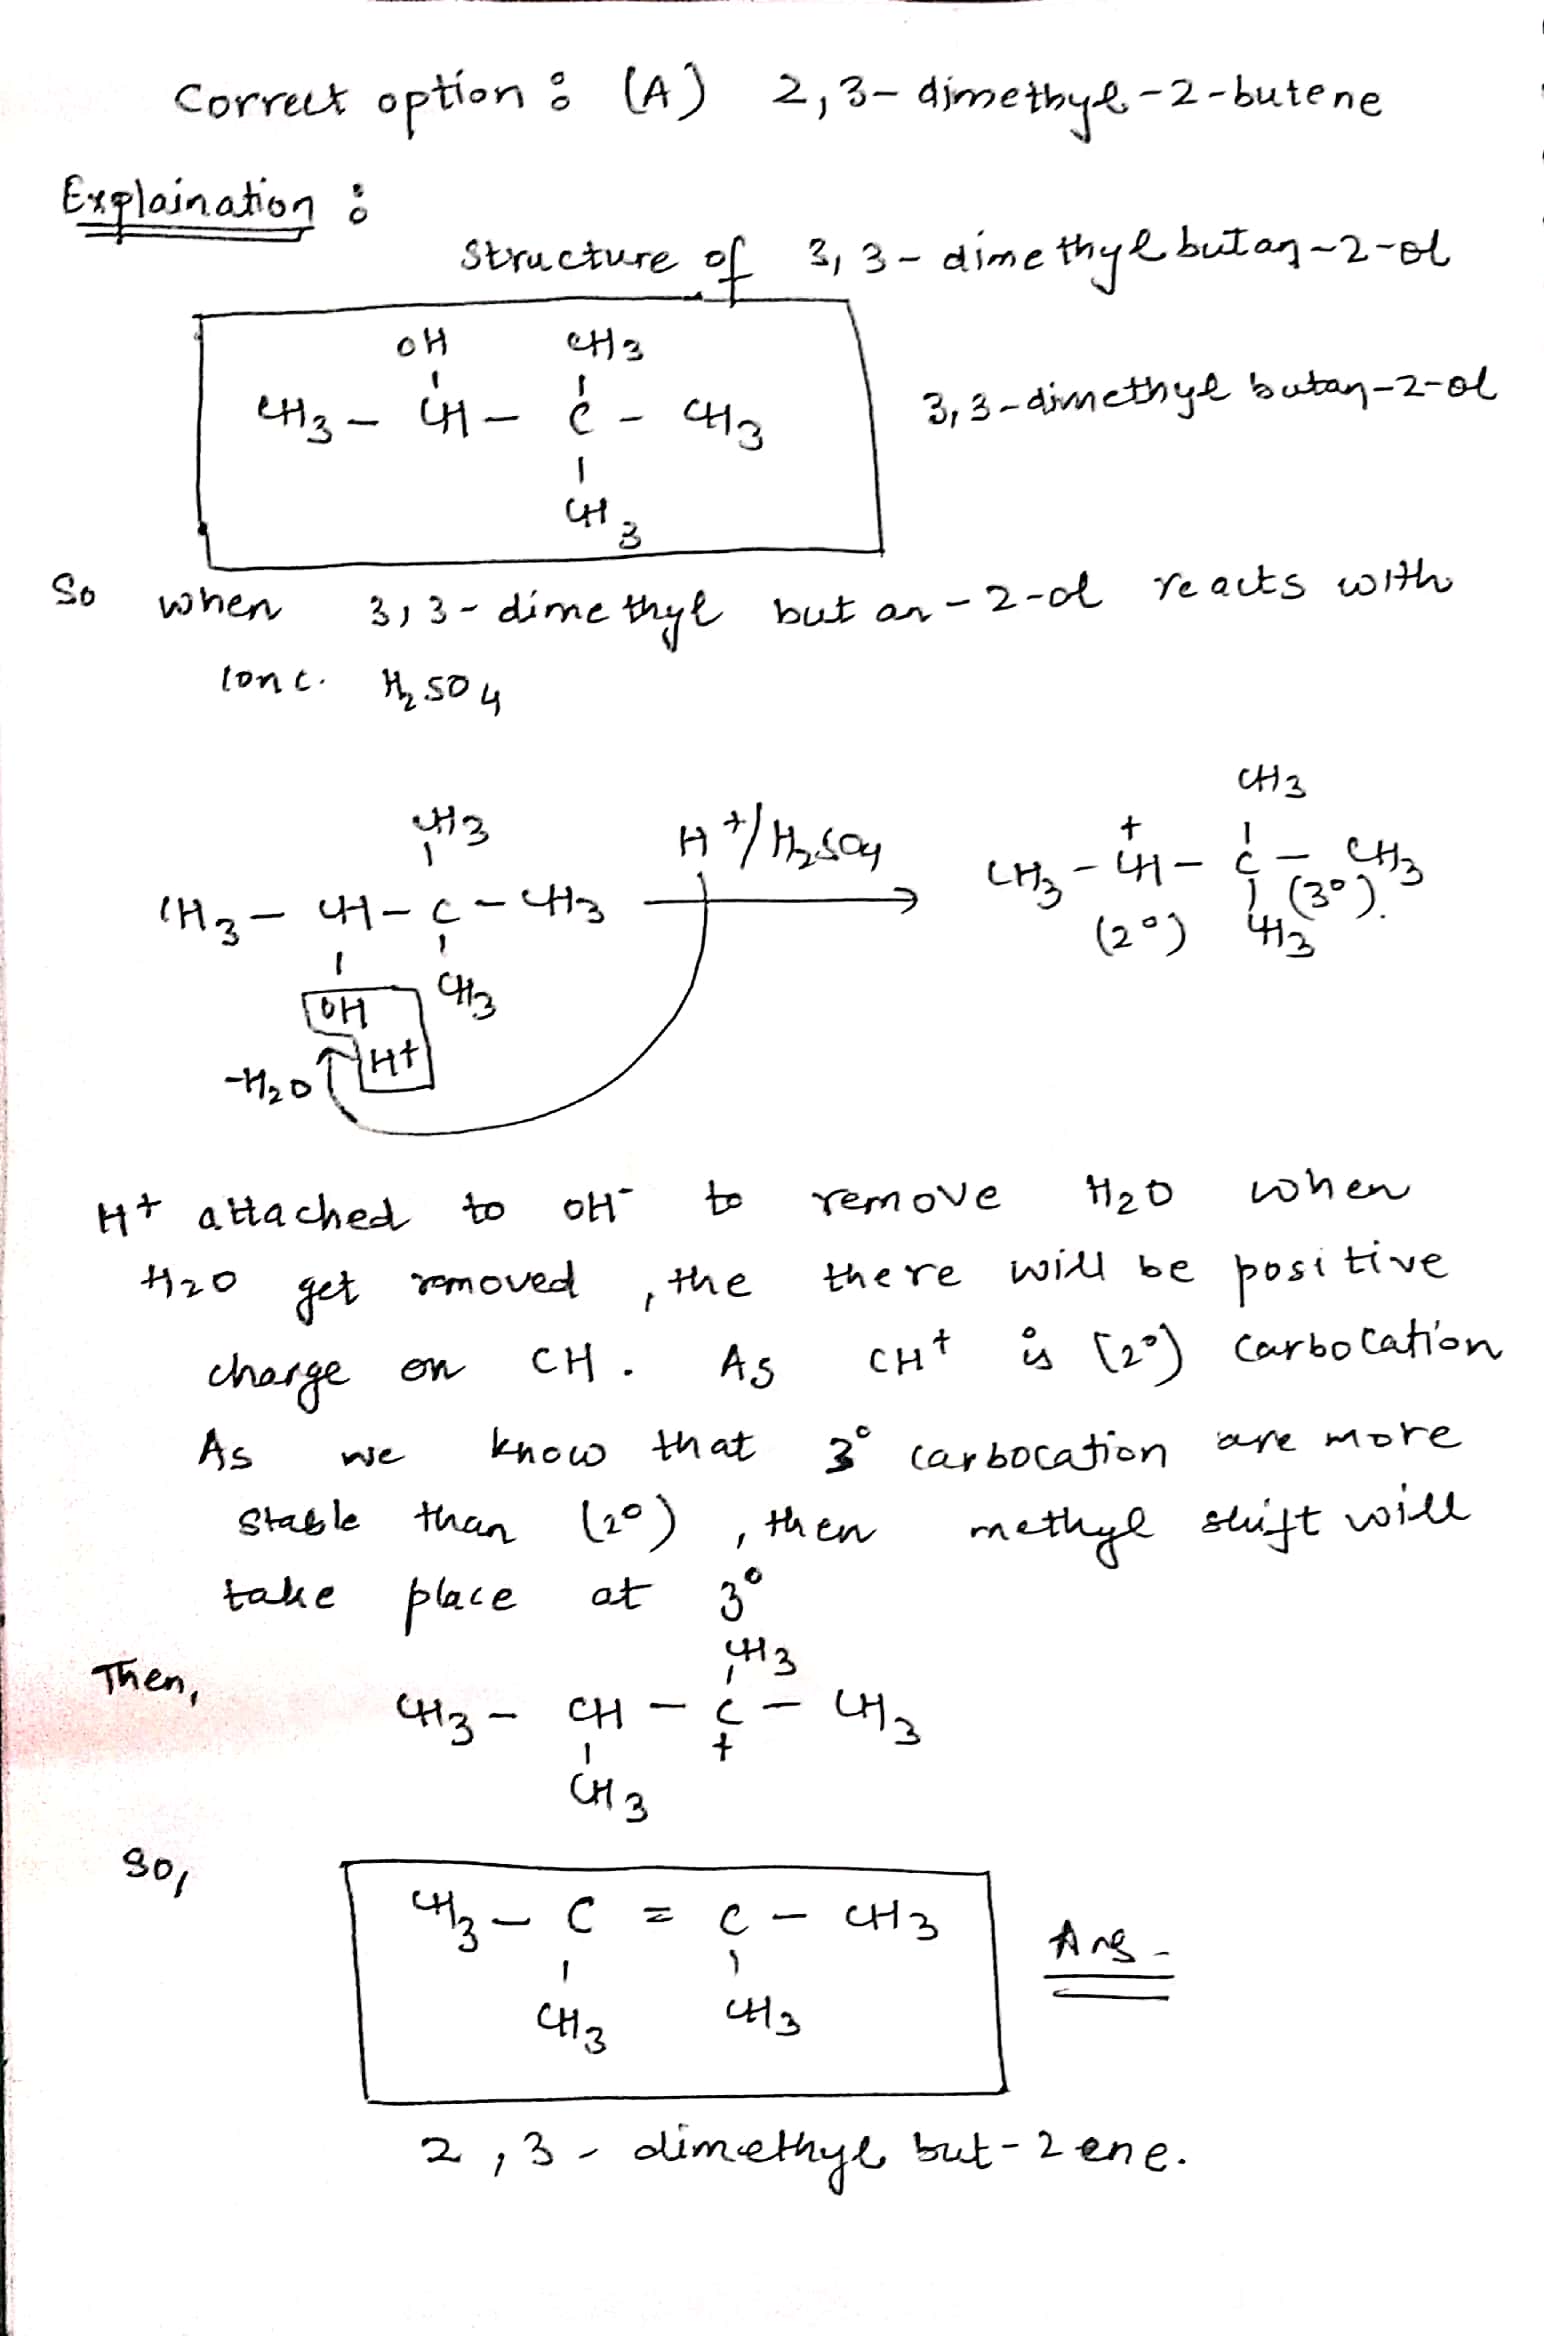 Correct option : (A) 2,3-dimethyl-2-butene
Explaination :
Structure of 3,3-dimethylbutan-2-ol
OH CH3
CH3 - CH - C - CH3
CH3
3,3-dimethyl butan-2-ol
So when 3,3-dimethyl butan-2-ol reacts with
conc. H2SO4
CH3
CH3 - CH - C - CH3
OH CH3
-H2O H+
H+/H2SO4
CH3
CH3 - CH+ - C - CH3
(2°) CH3 (3°).
H+ attached to OH- to remove H2O when
H2O get removed, the there will be positive
charge on CH. As CH+ is (2°) carbocation
As we know that 3° carbocation are more
stable than (2°), then methyl shift will
take place at 3°
Then,
CH3
CH3 - CH - C - CH3
CH3 +
So,
CH3 - C = C - CH3
CH3 CH3
Ans -
2,3 - dimethyl but-2ene.